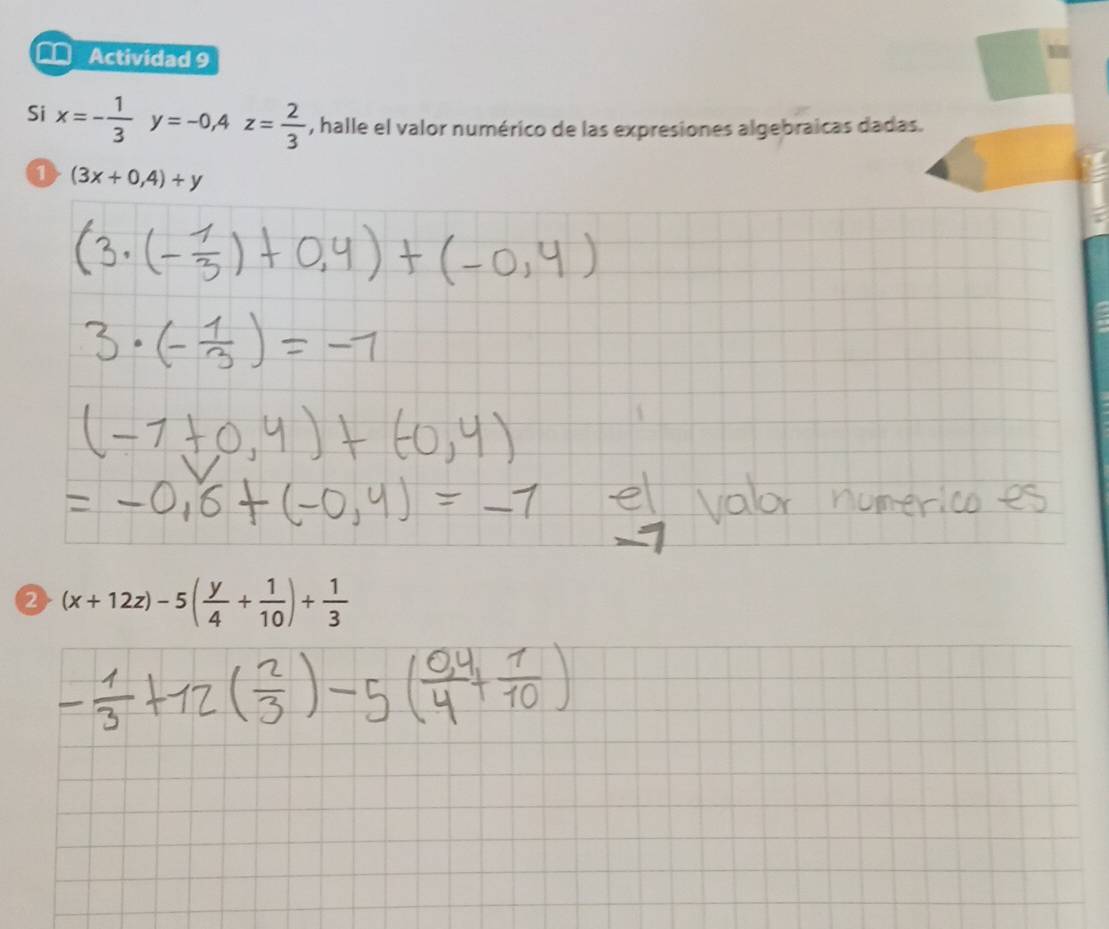 Actividad 9
Si x = -1/3 y = -0,4 z = 2/3, halle el valor numérico de las expresiones algebraicas dadas.
1 (3x + 0,4) + y
(3·(-1/3) + 0,4) + (-0,4)
3·(-1/3) = -1
(-1+0,4) + (-0,4)
= -0,6 + (-0,4) = -1 el valor numerico es
-1
2 (x + 12z) - 5(y/4 + 1/10) + 1/3
-1/3 + 12(2/3) - 5(0,4/4 + 1/10)